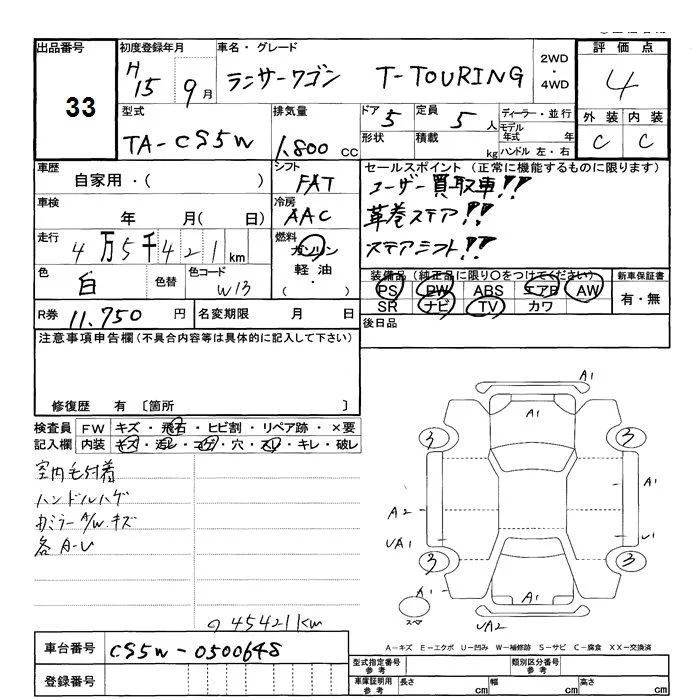 出品番号 初度登録年月 車名・グレード 2WD・4WD 評価点
33 H15 9月 ランサーワゴン T-TOURING 4
型式 排気量 ドア 5 定員 5人 ディーラー・並行 外装 内装
TA-CS5W 1,800 cc 形状 積載 kg モデル年式 年 ハンドル 左・右 C C
車歴 自家用・( ) シフト FAT セールスポイント (正常に機能するものに限ります)
車検 年 月( 日) 冷房 AAC ユーザー買取車!!
革巻ステア!!
走行 4万5千421km 燃料 ガソリン・軽油・( ) ステアシフト!!
色 白 色替 色コード W13 装備品 (純正品に限り○をつけてください) 新車保証書
PS PW ABS エアB AW 有・無
SR ナビ TV カワ
R券 11,750円 名変期限 月 日 後日品
注意事項申告欄(不具合内容等は具体的に記入して下さい)
修復歴 有 〔箇所 〕
検査員 FW キズ・飛石・ヒビ割・リペア跡・×要
記入欄 内装 キズ・汚レ・コゲ・穴・スレ・キレ・破レ
室内毛付着
ハンドルハゲ
カミラーA/W.キズ
各A-U
45421km
A1
A1
3 3
A1
A2
UA1 U1
3 3
A1 A1
UA2
A-キズ E-エクボ U-凹み W-補修跡 S-サビ C-腐食 XX-交換済
車台番号 CS5W-0500648
登録番号
型式指定番号 参考 類別区分番号 参考
車庫証明用 参考 長さ cm 幅 cm 高さ cm